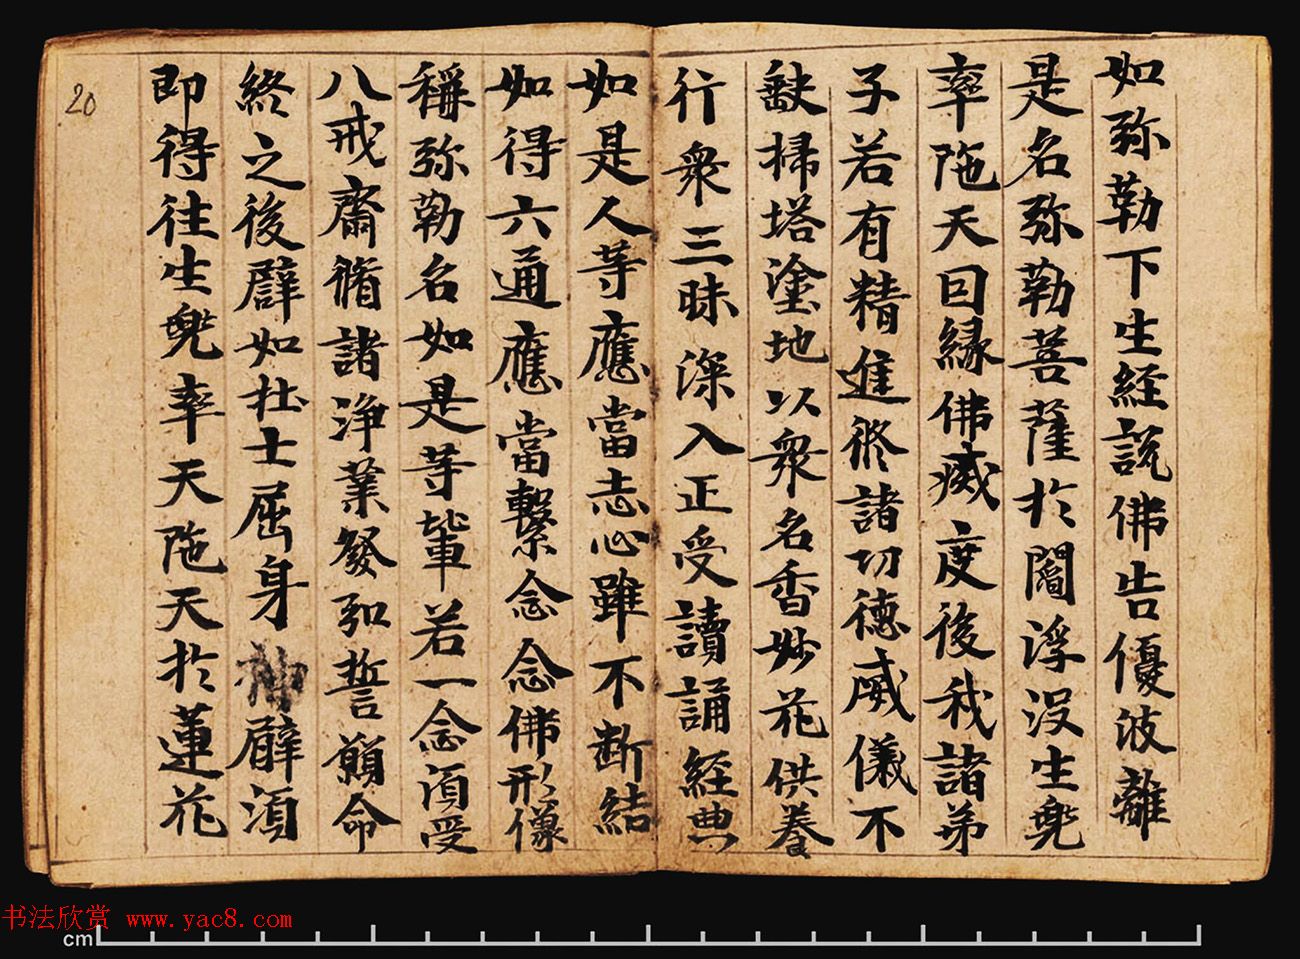 如弥勒下生經説佛告優波離
是名弥勒菩薩於閻浮没生兜
率陁天囙縁佛滅度後我諸弟
子若有精進修諸功德威儀不
缺掃塔塗地以衆名香妙花供養
行衆三昧深入正受讀誦經典
如是人等應當志心雖不断結
如得六通應當繫念念佛形像
稱弥勒名如是等輩若一念須受
八戒齋脩諸淨業發弘誓願命
終之後譬如壮士屈身臂須
即得往生兜率天陁天於蓮花
20
书法欣赏 www.yac8.com
cm